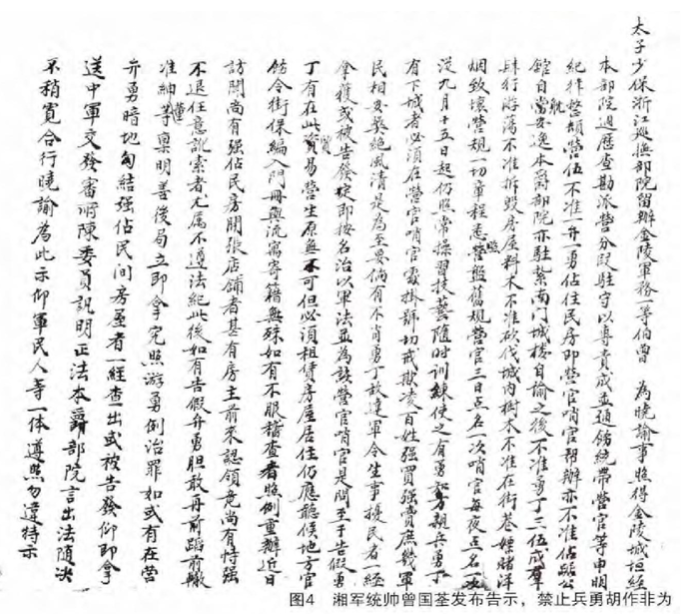 太子少保浙江巡撫部院留辦金陵軍務一等伯曾 為曉諭事照得金陵城垣經
本部院週歷查勘派營分段駐守以專責成並通飭統帶營官等申明
紀律整頓營伍不准一弁一勇佔住民房即營官哨官幫辦亦不准佔踞公
館自當安逸本爵部院亦駐紮南門城樓自諭之後不准勇丁三伍成羣
肆行游蕩不准拆毀房屋料木不准砍伐城內樹木不准在街巷嫖賭洋
烟致壞營規一切章程悉照營盤舊規營官三日点名一次哨官每夜点名一次
從九月十五日起仍照常操習技藝隨時訓練使之有勇知方親兵勇丁
有下城者必須在營官哨官處掛號切戒欺凌百姓強買強賣庶幾軍
民相安奬絕風清是為至要倘有不肖勇丁故違軍令生事擾民者一經
拿獲或被告發定即按名治以軍法並為該營官哨官是問至于告假勇
丁有在此貿易營生原無不可但必須租賃房屋居住仍應聽候地方官
飭令街保編入門冊與流寓寄籍無殊如有不服稽查者照例重辦近日
訪聞尚有強佔民房開張店鋪者甚有房主前來認領竟尚有恃強
不退任意訛索者尤屬不遵法紀此後如有告假弁勇胆敢再前蹈前轍
准紳董等稟明善後局立即拿究照游勇例治罪如或有在營
弁勇暗地勾結強佔民間房屋者一經查出或被告發仰即拿
送中軍交發審所陳委員訊明正法本爵部院言出法隨決
不稍寬合行曉諭為此示仰軍民人等一体遵照勿違特示
图4 湘军统帅曾国荃发布告示，禁止兵勇胡作非为